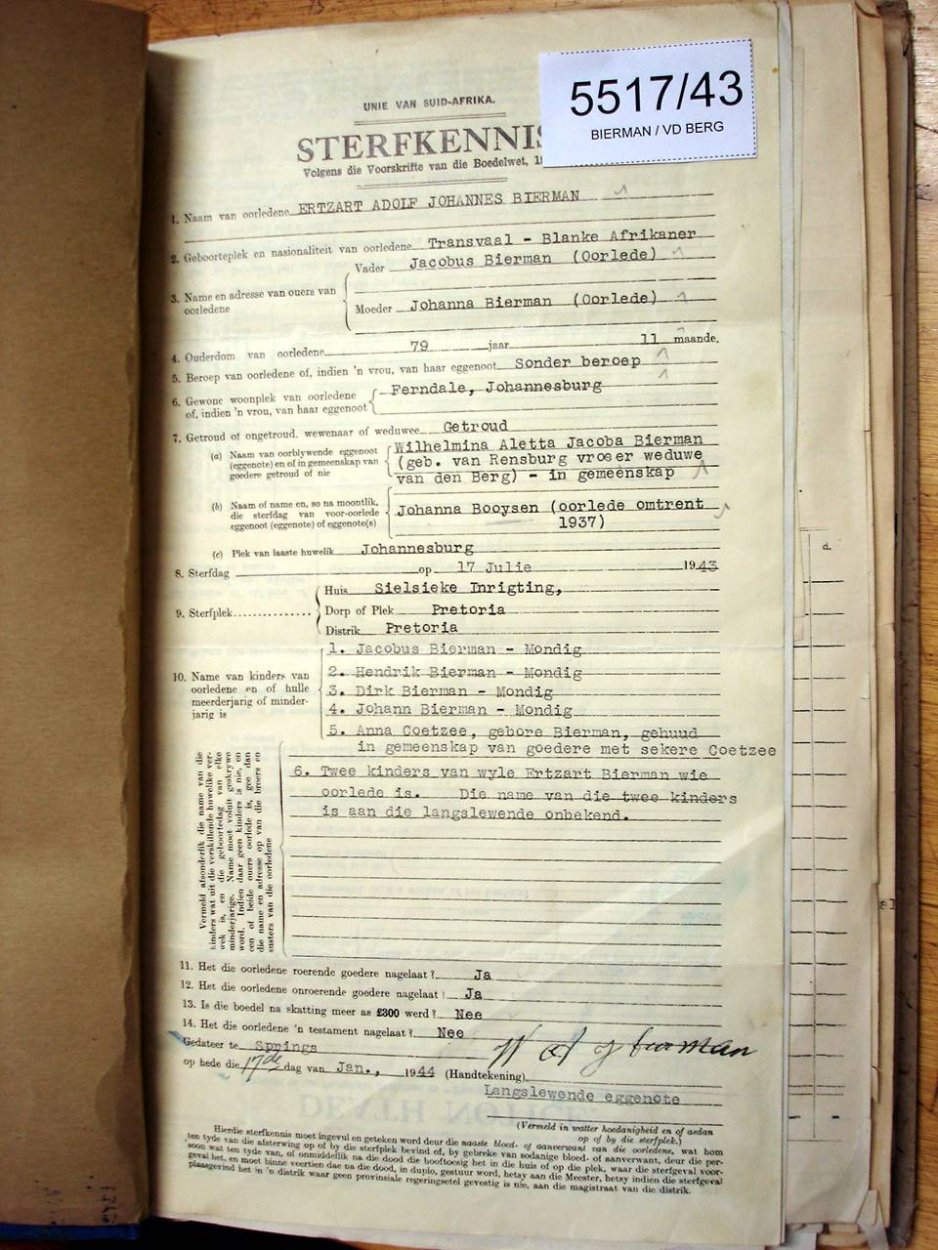 5517/43
BIERMAN / VD BERG
UNIE VAN SUID-AFRIKA.
STERFKENNIS
Volgens die Voorskrifte van die Boedelwet, 1
1. Naam van oorledene ERTZART ADOLF JOHANNES BIERMAN
2. Geboorteplek en nasionaliteit van oorledene Transvaal - Blanke Afrikaner
3. Name en adresse van ouers van oorledene
Vader Jacobus Bierman (Oorlede)
Moeder Johanna Bierman (Oorlede)
4. Ouderdom van oorledene 79 jaar 11 maande.
5. Beroep van oorledene of, indien 'n vrou, van haar eggenoot Sonder beroep
6. Gewone woonplek van oorledene Ferndale, Johannesburg
of, indien 'n vrou, van haar eggenoot
7. Getroud of ongetroud, wewenaar of weduwee Getroud
(a) Naam van oorblywende eggenoot
(eggenote) en of in gemeenskap van
goedere getroud of nie
Wilhelmina Aletta Jacoba Bierman
(geb. van Rensburg vroeer weduwe
van den Berg) - in gemeenskap
(b) Naam of name en, so na moontlik,
die sterfdag van voor-oorlede
eggenoot (eggenote) of eggenote(s)
Johanna Booysen (oorlede omtrent
1937)
(c) Plek van laaste huwelik Johannesburg
8. Sterfdag op 17 Julie 1943
9. Sterfplek
Huis Sielsieke Inrigting,
Dorp of Plek Pretoria
Distrik Pretoria
10. Name van kinders van
oorledene en of hulle
meerderjarig of minder-
jarig is
1. Jacobus Bierman - Mondig
2. Hendrik Bierman - Mondig
3. Dirk Bierman - Mondig
4. Johann Bierman - Mondig
5. Anna Coetzee, gebore Bierman, gehuud
in gemeenskap van goedere met sekere Coetzee
6. Twee kinders van wyle Ertzart Bierman wie
oorlede is. Die name van die twee kinders
is aan die langslewende onbekend.
Vermeld afsonderlik die name van die
kinders wat uit die verskillende huwelike ver-
wek is, en die geboortedag van elke
minderjarige. Name moet voluit geskrywe
word. Indien daar geen kinders is nie, en
een of beide ouers oorlede is, gee dan
die name en adresse op van die broers en
susters van die oorledene
11. Het die oorledene roerende goedere nagelaat? Ja
12. Het die oorledene onroerende goedere nagelaat? Ja
13. Is die boedel na skatting meer as £300 werd? Nee
14. Het die oorledene 'n testament nagelaat? Nee
Gedateer te Springs
op hede die 17de dag van Jan., 1944 (Handtekening) W A J Bierman
Langslewende eggenote
(Vermeld in watter hoedanigheid en of aedan
op of by die sterfplek.)
Hierdie sterfkennis moet ingevul en geteken word deur die naaste bloed- of aanverwant van die oorledene, wat hom
ten tyde van die afsterwing op of by die sterfplek bevind of, by gebreke van sodanige bloed- of aanverwant, deur die per-
soon wat ten tyde van, of onmiddellik na die dood die hooftoesig het in die huis of op die plek, waar die sterfgeval voor-
geval het, en moet binne veertien dae na die dood, in duplo, gestuur word, hetsy aan die Meester, hetsy indien die sterfgeval
plaasgevind het in 'n distrik waar geen provinsiale regeringsetel gevestig is nie, aan die magistraat van die distrik.
DEATH NOTICE
d.